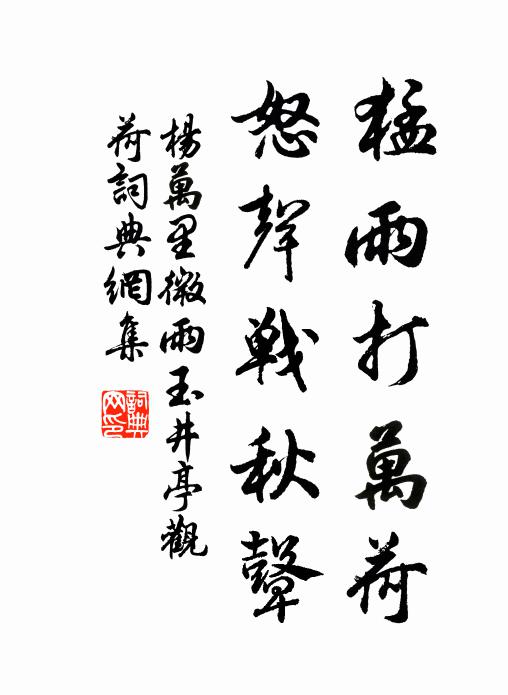 猛雨打萬荷
怒聲戰秋鼙
楊萬里微雨玉井亭觀
荷詞典網集
詞典網印